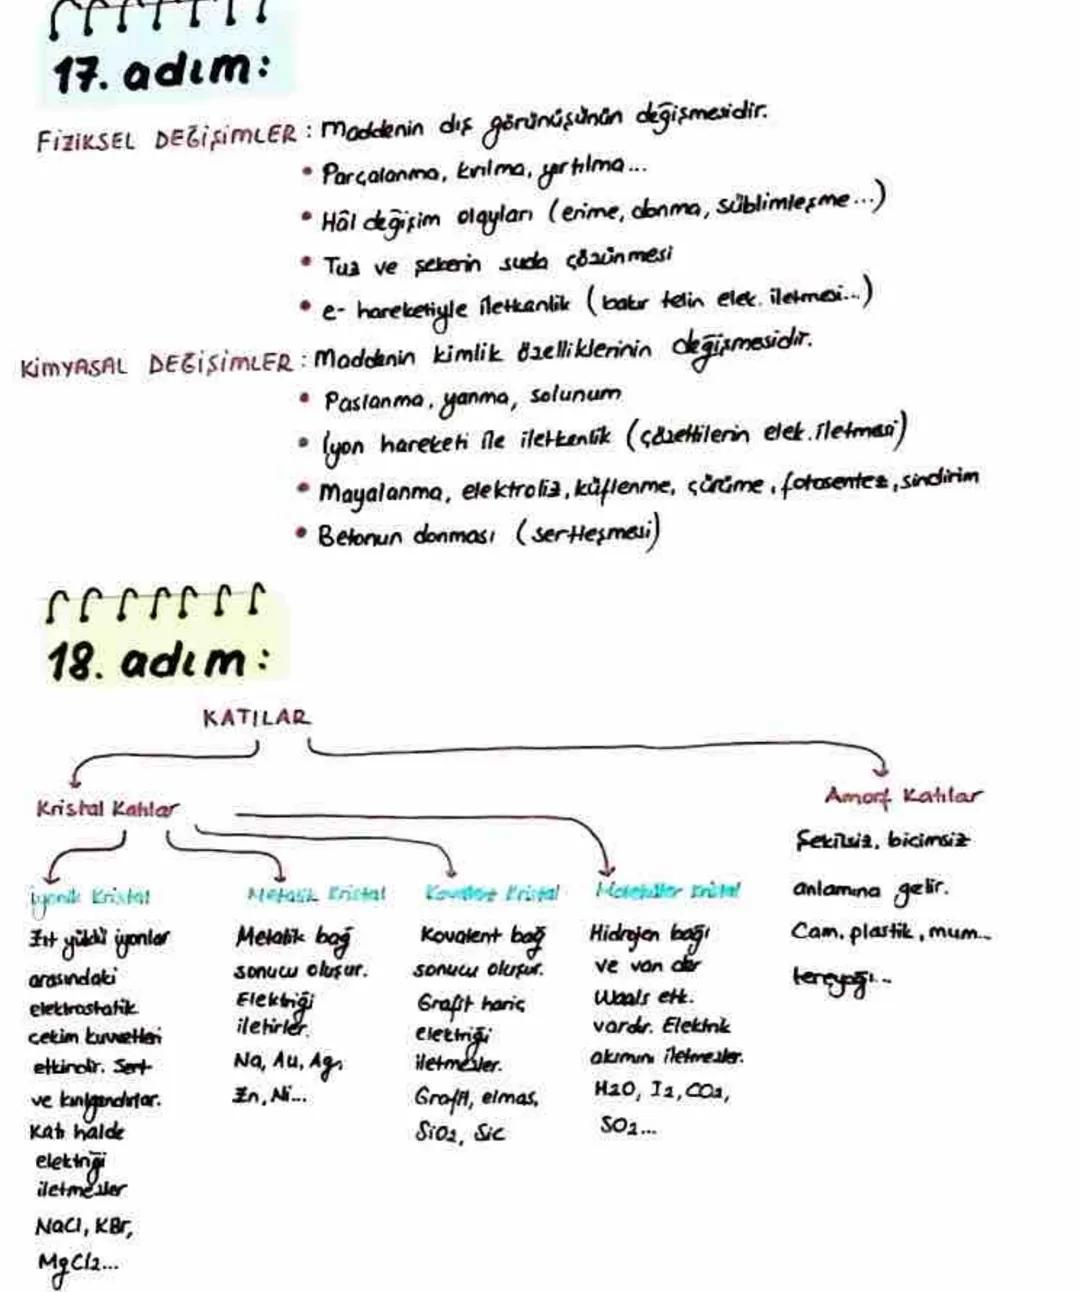 17. adım:
FİZİKSEL DEĞİŞİMLER : Maddenin dış görünüşünün değişmesidir.
• Parçalanma, kırılma, yırtılma...
• Hâl değişim olayları (erime, donma, süblimleşme...)
• Tuz ve şekerin suda çözünmesi
• e- hareketiyle iletkenlik (bakır telin elek. iletmesi...)
KİMYASAL DEĞİŞİMLER : Maddenin kimlik özelliklerinin değişmesidir.
• Paslanma, yanma, solunum
• İyon hareketi ile iletkenlik (çözeltilerin elek. iletmesi)
• Mayalanma, elektroliz, küflenme, çürüme, fotosentez, sindirim
• Betonun donması (sertleşmesi)
18. adım:
KATILAR
Kristal Katılar
İyonik Kristal
Zıt yüklü iyonlar
arasındaki
elektrostatik
çekim kuvvetleri
etkindir. Sert
ve kırılgandırlar.
Katı halde
elektriği
iletmezler
NaCl, KBr,
MgCl2...
Metalik Kristal
Metalik bağ
sonucu oluşur.
Elektriği
iletirler.
Na, Au, Ag,
Zn, Ni...
Kovalent Kristal
Kovalent bağ
sonucu oluşur.
Grafit hariç
elektriği
iletmezler.
Grafit, elmas,
SiO2, SiC
Moleküler Kristal
Hidrojen bağı
ve van der
Waals etk.
vardır. Elektrik
akımını iletmezler.
H2O, I2, CO2,
SO2...
Amorf Katılar
Şekilsiz, biçimsiz
anlamına gelir.
Cam, plastik, mum...
tereyağı...